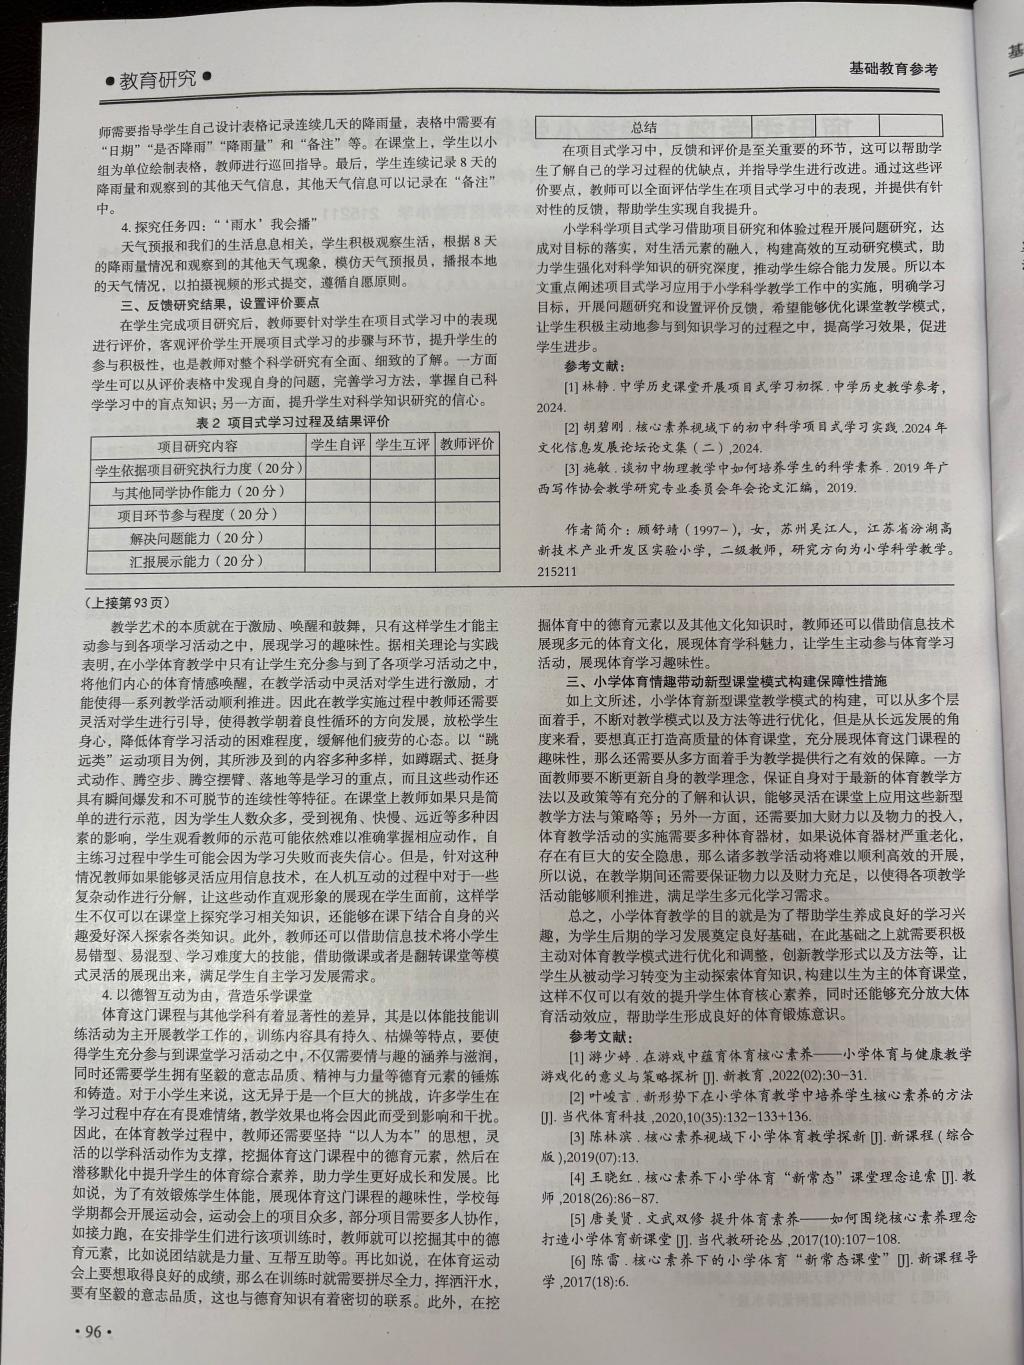 ●教育研究●
基础教育参考
师需要指导学生自己设计表格记录连续几天的降雨量，表格中需要有
“日期”“是否降雨”“降雨量”和“备注”等。在课堂上，学生以小
组为单位绘制表格，教师进行巡回指导。最后，学生连续记录 8 天的
降雨量和观察到的其他天气信息，其他天气信息可以记录在“备注”
中。
4. 探究任务四：“‘雨水’我会播”
天气预报和我们的生活息息相关，学生积极观察生活，根据 8 天
的降雨量情况和观察到的其他天气现象，模仿天气预报员，播报本地
的天气情况，以拍摄视频的形式提交，遵循自愿原则。
三、反馈研究结果，设置评价要点
在学生完成项目研究后，教师要针对学生在项目式学习中的表现
进行评价，客观评价学生开展项目式学习的步骤与环节，提升学生的
参与积极性，也是教师对整个科学研究有全面、细致的了解。一方面
学生可以从评价表格中发现自身的问题，完善学习方法，掌握自己科
学学习中的盲点知识；另一方面，提升学生对科学知识研究的信心。
表 2 项目式学习过程及结果评价
项目研究内容 学生自评 学生互评 教师评价
学生依据项目研究执行力度（20 分）
与其他同学协作能力（20 分）
项目环节参与程度（20 分）
解决问题能力（20 分）
汇报展示能力（20 分）
总结
在项目式学习中，反馈和评价是至关重要的环节，这可以帮助学
生了解自己的学习过程的优缺点，并指导学生进行改进。通过这些评
价要点，教师可以全面评估学生在项目式学习中的表现，并提供有针
对性的反馈，帮助学生实现自我提升。
小学科学项目式学习借助项目研究和体验过程开展问题研究，达
成对目标的落实，对生活元素的融入，构建高效的互动研究模式，助
力学生强化对科学知识的研究深度，推动学生综合能力发展。所以本
文重点阐述项目式学习应用于小学科学教学工作中的实施，明确学习
目标，开展问题研究和设置评价反馈，希望能够优化课堂教学模式，
让学生积极主动地参与到知识学习的过程之中，提高学习效果，促进
学生进步。
参考文献：
[1] 林静 . 中学历史课堂开展项目式学习初探 . 中学历史教学参考，
2024.
[2] 胡碧刚 . 核心素养视域下的初中科学项目式学习实践 .2024 年
文化信息发展论坛论文集（二）,2024.
[3] 施敏 . 谈初中物理教学中如何培养学生的科学素养 . 2019 年广
西写作协会教学研究专业委员会年会论文汇编，2019.
作者简介：顾舒靖（1997-），女，苏州吴江人，江苏省汾湖高
新技术产业开发区实验小学，二级教师，研究方向为小学科学教学。
215211
（上接第 93 页）
教学艺术的本质就在于激励、唤醒和鼓舞，只有这样学生才能主
动参与到各项学习活动之中，展现学习的趣味性。据相关理论与实践
表明，在小学体育教学中只有让学生充分参与到了各项学习活动之中，
将他们内心的体育情感唤醒，在教学活动中灵活对学生进行激励，才
能使得一系列教学活动顺利推进。因此在教学实施过程中教师还需要
灵活对学生进行引导，使得教学朝着良性循环的方向发展，放松学生
身心，降低体育学习活动的困难程度，缓解他们疲劳的心态。以“跳
远类”运动项目为例，其所涉及到的内容多种多样，如蹲踞式、挺身
式动作、腾空步、腾空摆臂、落地等是学习的重点，而且这些动作还
具有瞬间爆发和不可脱节的连续性等特征。在课堂上教师如果只是简
单的进行示范，因为学生人数众多，受到视角、快慢、远近等多种因
素的影响，学生观看教师的示范可能依然难以准确掌握相应动作，自
主练习过程中学生可能会因为学习失败而丧失信心。但是，针对这种
情况教师如果能够灵活应用信息技术，在人机互动的过程中对于一些
复杂动作进行分解，让这些动作直观形象的展现在学生面前，这样学
生不仅可以在课堂上探究学习相关知识，还能够在课下结合自身的兴
趣爱好深入探索各类知识。此外，教师还可以借助信息技术将小学生
易错型、易混型、学习难度大的技能，借助微课或者是翻转课堂等模
式灵活的展现出来，满足学生自主学习发展需求。
4. 以德智互动为由，营造乐学课堂
体育这门课程与其他学科有着显著性的差异，其是以体能技能训
练活动为主开展教学工作的，训练内容具有持久、枯燥等特点，要使
得学生充分参与到课堂学习活动之中，不仅需要情与趣的涵养与滋润，
同时还需要学生拥有坚毅的意志品质、精神与力量等德育元素的锤炼
和铸造。对于小学生来说，这无异于是一个巨大的挑战，许多学生在
学习过程中存在有畏难情绪，教学效果也将会因此而受到影响和干扰。
因此，在体育教学过程中，教师还需要坚持“以人为本”的思想，灵
活的以学科活动作为支撑，挖掘体育这门课程中的德育元素，然后在
潜移默化中提升学生的体育综合素养，助力学生更好成长和发展。比
如说，为了有效锻炼学生体能，展现体育这门课程的趣味性，学校每
学期都会开展运动会，运动会上的项目众多，部分项目需要多人协作，
如接力跑，在安排学生们进行该项训练时，教师就可以挖掘其中的德
育元素，比如说团结就是力量、互帮互助等。再比如说，在体育运动
会上要想取得良好的成绩，那么在训练时就需要拼尽全力，挥洒汗水，
要有坚毅的意志品质，这也与德育知识有着密切的联系。此外，在挖
掘体育中的德育元素以及其他文化知识时，教师还可以借助信息技术
展现多元的体育文化，展现体育学科魅力，让学生主动参与体育学习
活动，展现体育学习趣味性。
三、小学体育情趣带动新型课堂模式构建保障性措施
如上文所述，小学体育新型课堂教学模式的构建，可以从多个层
面着手，不断对教学模式以及方法等进行优化，但是从长远发展的角
度来看，要想真正打造高质量的体育课堂，充分展现体育这门课程的
趣味性，那么还需要从多方面着手为教学提供行之有效的保障。一方
面教师要不断更新自身的教学理念，保证自身对于最新的体育教学方
法以及政策等有充分的了解和认识，能够灵活在课堂上应用这些新型
教学方法与策略等；另外一方面，还需要加大财力以及物力的投入，
体育教学活动的实施需要多种体育器材，如果说体育器材严重老化，
存在有巨大的安全隐患，那么诸多教学活动将难以顺利高效的开展，
所以说，在教学期间还需要保证物力以及财力充足，以使得各项教学
活动能够顺利推进，满足学生多元化学习需求。
总之，小学体育教学的目的就是为了帮助学生养成良好的学习兴
趣，为学生后期的学习发展奠定良好基础，在此基础之上就需要积极
主动对体育教学模式进行优化和调整，创新教学形式以及方法等，让
学生从被动学习转变为主动探索体育知识，构建以生为主的体育课堂，
这样不仅可以有效的提升学生体育核心素养，同时还能够充分放大体
育活动效应，帮助学生形成良好的体育锻炼意识。
参考文献：
[1] 游少婷 . 在游戏中蕴育体育核心素养——小学体育与健康教学
游戏化的意义与策略探析 [J]. 新教育 ,2022(02):30-31.
[2] 叶峻言 . 新形势下在小学体育教学中培养学生核心素养的方法
[J]. 当代体育科技 ,2020,10(35):132-133+136.
[3] 陈林滨 . 核心素养视域下小学体育教学探新 [J]. 新课程 ( 综合
版 ),2019(07):13.
[4] 王晓红 . 核心素养下小学体育“新常态”课堂理念追索 [J]. 教
师 ,2018(26):86-87.
[5] 唐美贤 . 文武双修 提升体育素养——如何围绕核心素养理念
打造小学体育新课堂 [J]. 当代教研论丛 ,2017(10):107-108.
[6] 陈雷 . 核心素养下的小学体育“新常态课堂”[J]. 新课程导
学 ,2017(18):6.
· 96 ·